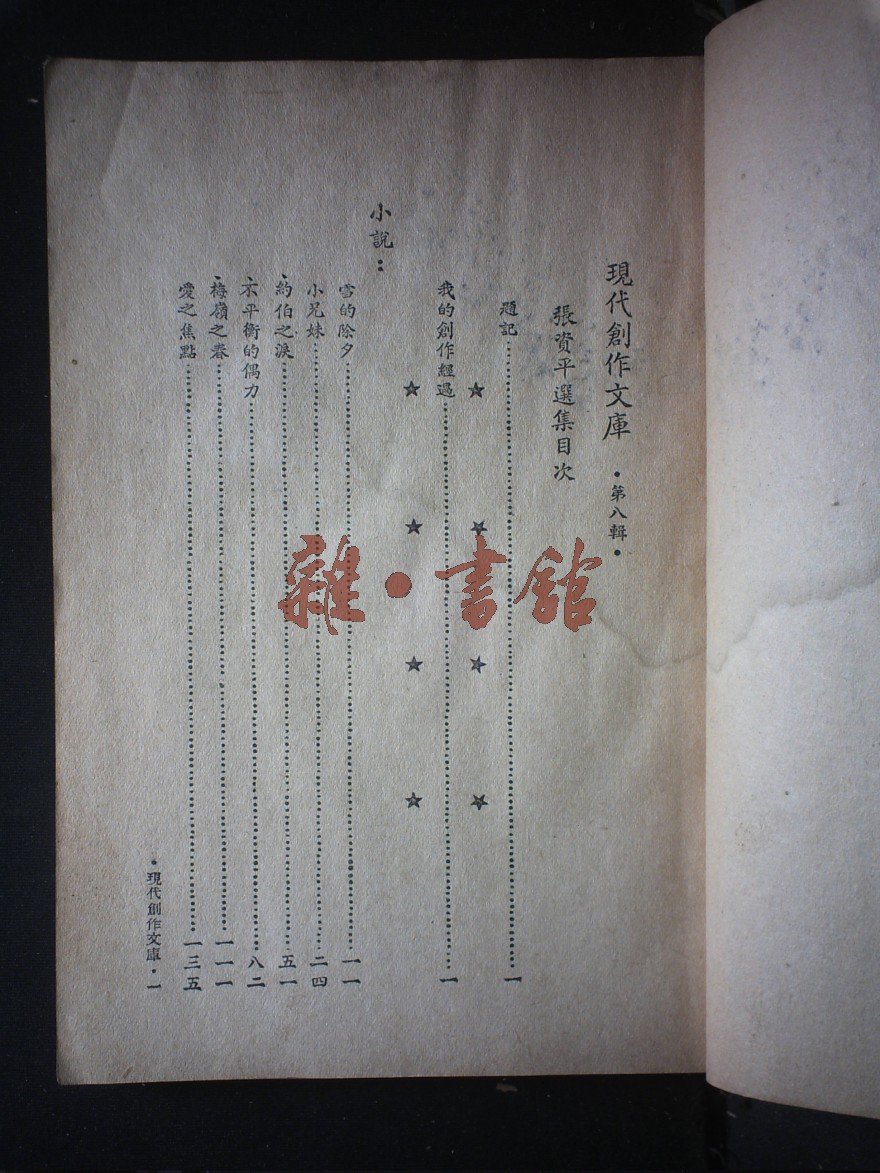 現代創作文庫 •第八輯•
張資平選集目次
題記……一
★ ★ ★ ★
我的創作經過……一
★ ★ ★ ★
小說：
雪的除夕……一一
小兄妹……二四
、約伯之淚……五一
、不平衡的偶力……八二
、梅嶺之春……一一一
愛之焦點……一三五
•現代創作文庫•一
雜•書館